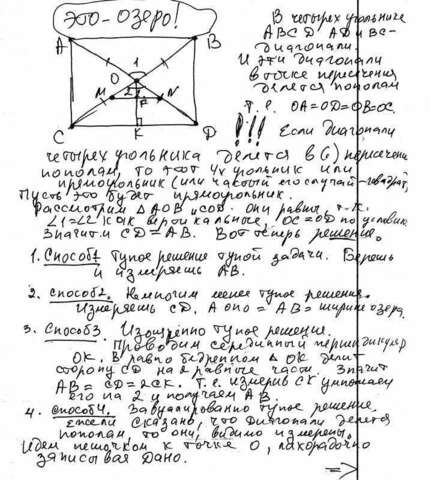 ЭТО-ОЗЕРО!
A
B
1
O
M
2
N
P
C
K
D
В четырех угольнике
ABCD AD и BC-
диагонали.
И эти диагонали
в точке пересечения
делятся пополам
Т.е. OA=OD=OB=OC.
!!! Если диагонали
четырех угольника делятся в (·) пересечен
пополам, то этот 4х угольник или
прямоугольник (или частный его случай - квадрат)
Пусть это будет прямоугольник.
Рассмотрим Δ AOB и COD. они равны, т-к.
∠1=∠2 как вертикальные, OC=OD по условию
Значит CD=AB. Вот теперь решение.
1. Способ1 Тупое решение тупой задачи. Берешь
и измеряешь AB.
2. Способ2. Немногим менее тупое решение.
Измеряешь CD. А оно = AB = ширине озера.
3. Способ3. Изощренно тупое решение.
Проводим серединный перпендикуляр
OK. В равнобедренном Δ OK делит
сторону CD на 2 равные части. Значит
AB=CD=2CK. Т.е. измерив CK умножаем
его на 2 и получаем AB.
4. способ4. Завуалированно тупое решение.
Ежели сказано, что диагонали делятся
пополам, то они, видимо измерены.
Идем пешочком к точке O, лихорадочно
записывая Дано.
⇒